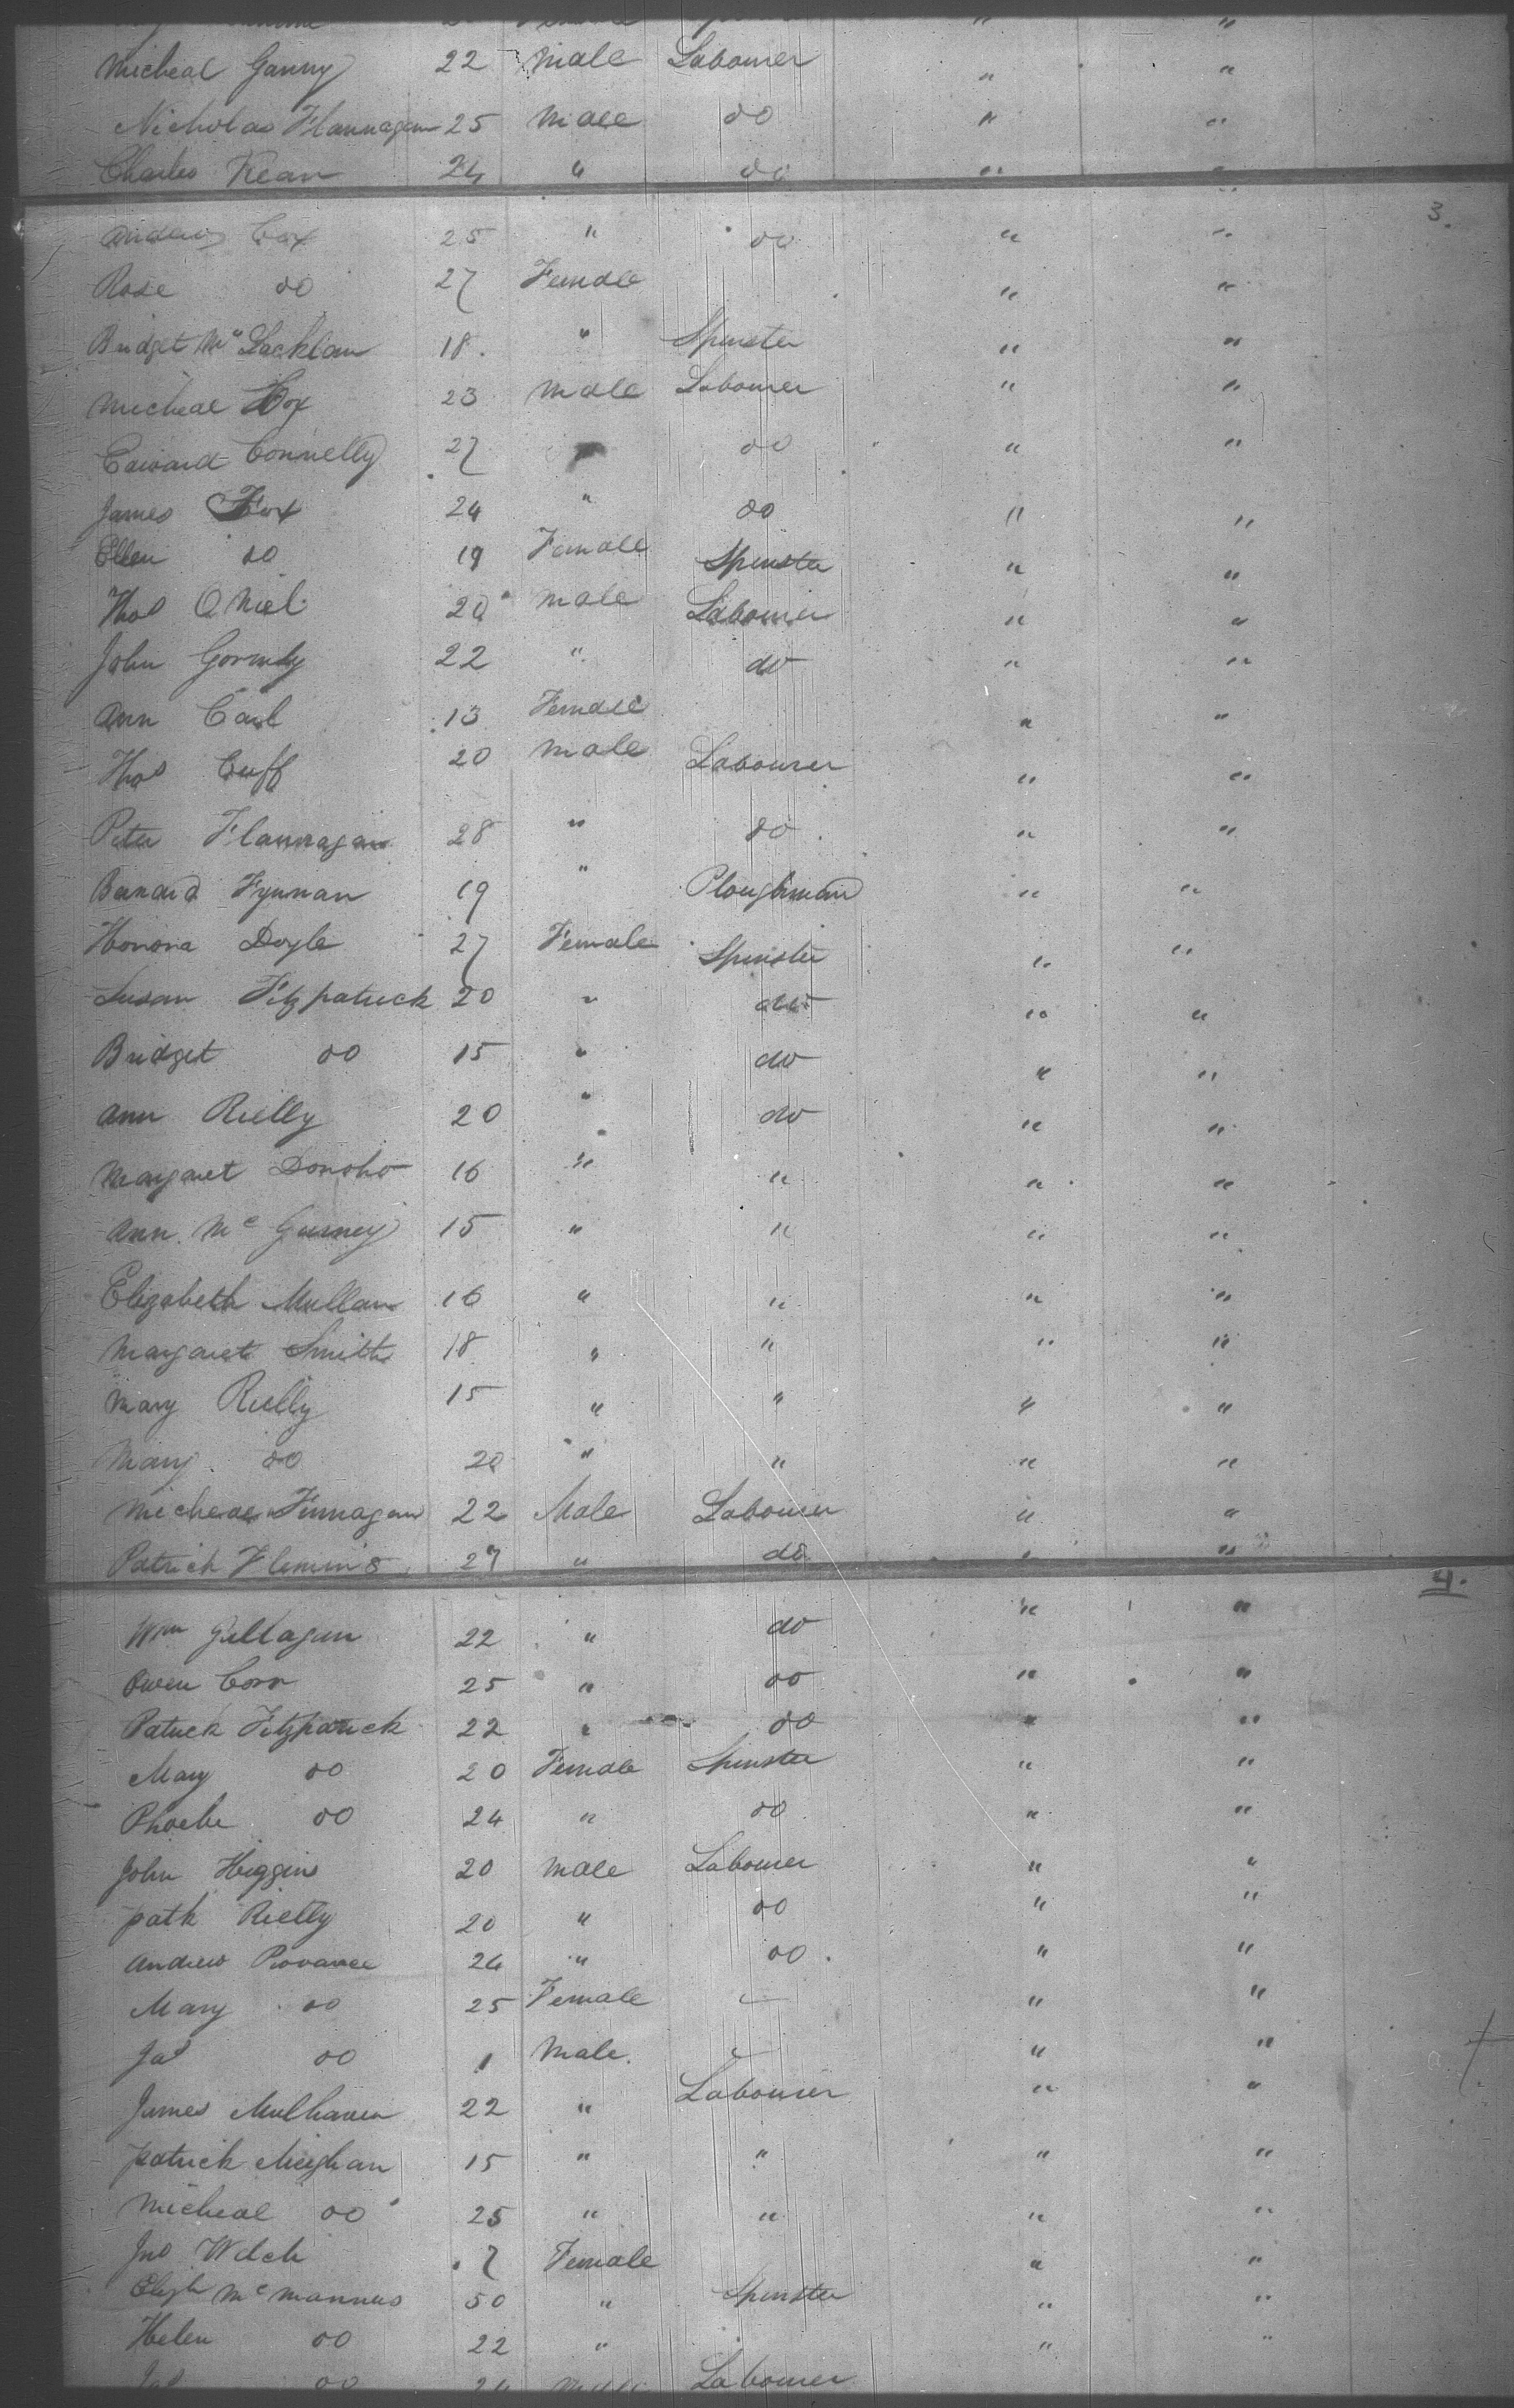 Micheal Ganny 22 Male Labourer " "
Nicholas Flannagan 25 Male do " "
Charles Kean 24 " do " "
3.
Andrew Cox 25 " do " "
Rose do 27 Female " "
Bridget Mc Lacklan 18 " Spinster " "
Micheal Fox 23 Male Labourer " "
Edward Connelly 27 " do " "
James Fox 24 " do " "
Ellen do 19 Female Spinster " "
Thos O Niel 20 Male Labourer " "
John Gormly 22 " do " "
Ann Carl 13 Female " "
Thos Cuff 20 Male Labourer " "
Peter Flannagan 28 " do " "
Barnard Fynnan 19 " Ploughman " "
Honora Doyle 27 Female Spinster " "
Susan Fitzpatrick 20 " do " "
Bridget do 15 " do " "
Ann Rielly 20 " do " "
Margaret Donoho 16 " " " "
Ann Mc Gurney 15 " " " "
Elizabeth Mullan 16 " " " "
Margaret Smith 18 " " " "
Mary Rielly 15 " " " "
Mary do 20 " " " "
Micheal Finnagan 22 Male Labourer " "
Patrick Fleming 27 " do " "
4.
Wm Gillagan 22 " do " "
Owen Corr 25 " do " "
Patrick Fitzpatrick 22 " do " "
Mary do 20 Female Spinster " "
Phoebe do 24 " do " "
John Higgins 20 Male Labourer " "
Patk Rielly 20 " do " "
Andrew Provance 24 " do " "
Mary do 25 Female " "
Jas do 1 Male " "
James Mulhaven 22 " Labourer " "
Patrick Meighan 15 " " " "
Micheal do 25 " " " "
Jno Welch 7 Female " "
Elizh Mc Mannus 50 " Spinster " "
Helen do 22 " " "
Jas do 24 Male Labourer